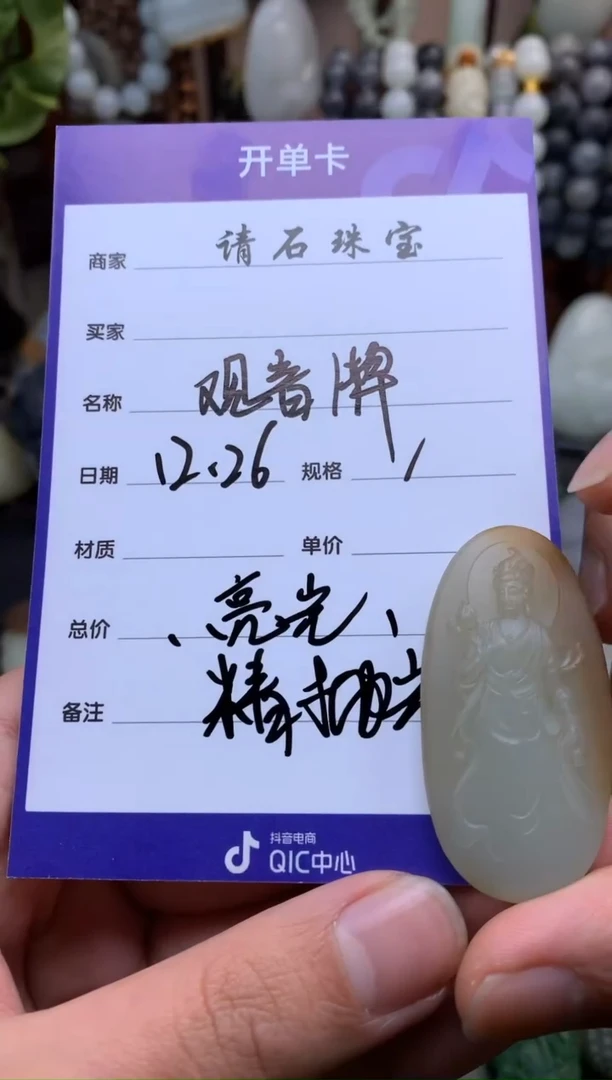 开单卡
商家 请石珠宝
买家
名称 观音牌
日期 12.26 规格 /
材质 单价
总价 、亮光、
备注 精抛光
抖音电商
QIC中心